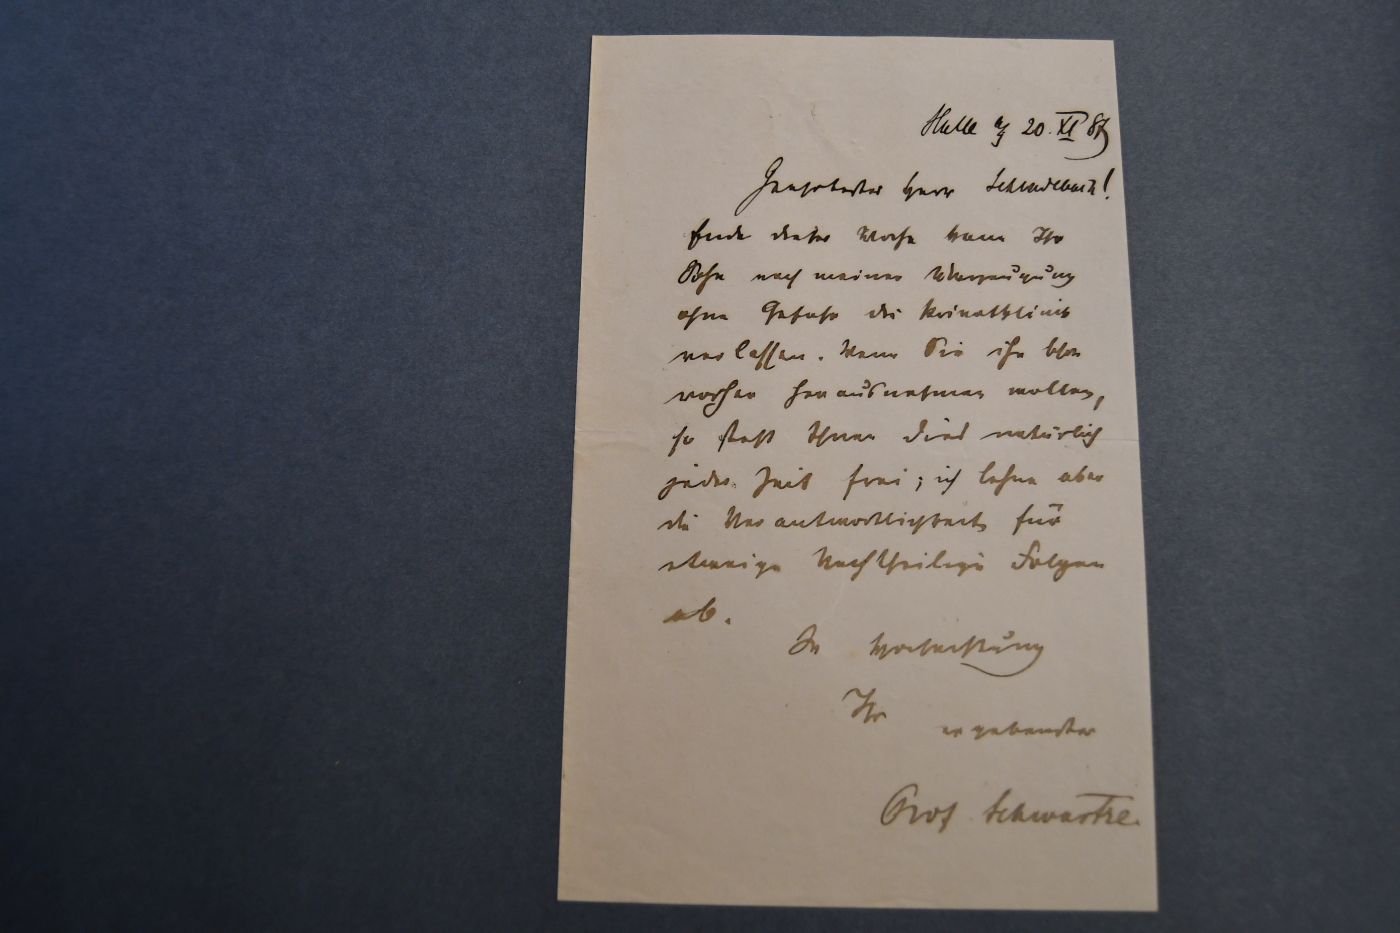 Halle a/S 20. XI 87
Geehrtester Herr Schladebach!
Ende dieser Woche kann Ihr
Sohn nach meiner Überzeugung
ohne Gefahr die Privatklinik
verlassen. Wenn Sie ihn schon
vorher herausnehmen wollen,
so steht Ihnen dies natürlich
jeder Zeit frei; ich lehne aber
die Verantwortlichkeit für
etwaige nachtheilige Folgen
ab.
In Hochachtung
Ihr
ergebenster
Prof Schwartze.